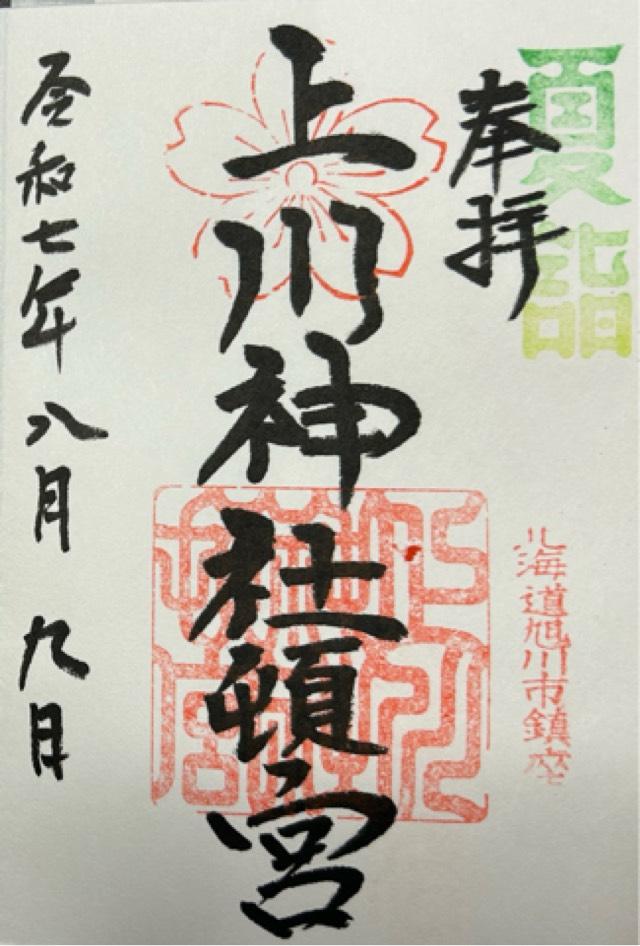 夏詣
奉拝
北海道旭川市鎮座
上川神社頓宮
令和七年八月九日